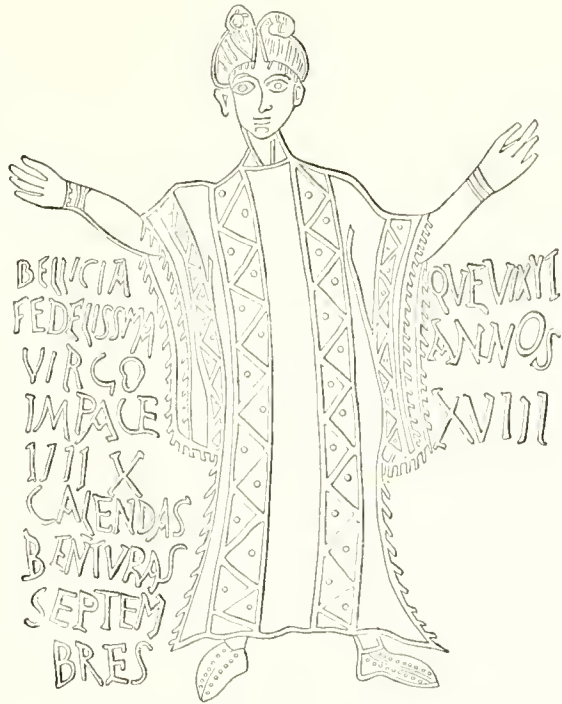 BELLICIA
FEDELISSIMA
VIRGO
IMPACE
IIII X
CALENDAS
BENTVRAS
SEPTEM
BRES
QVE VIXIT
ANNOS
XVIII